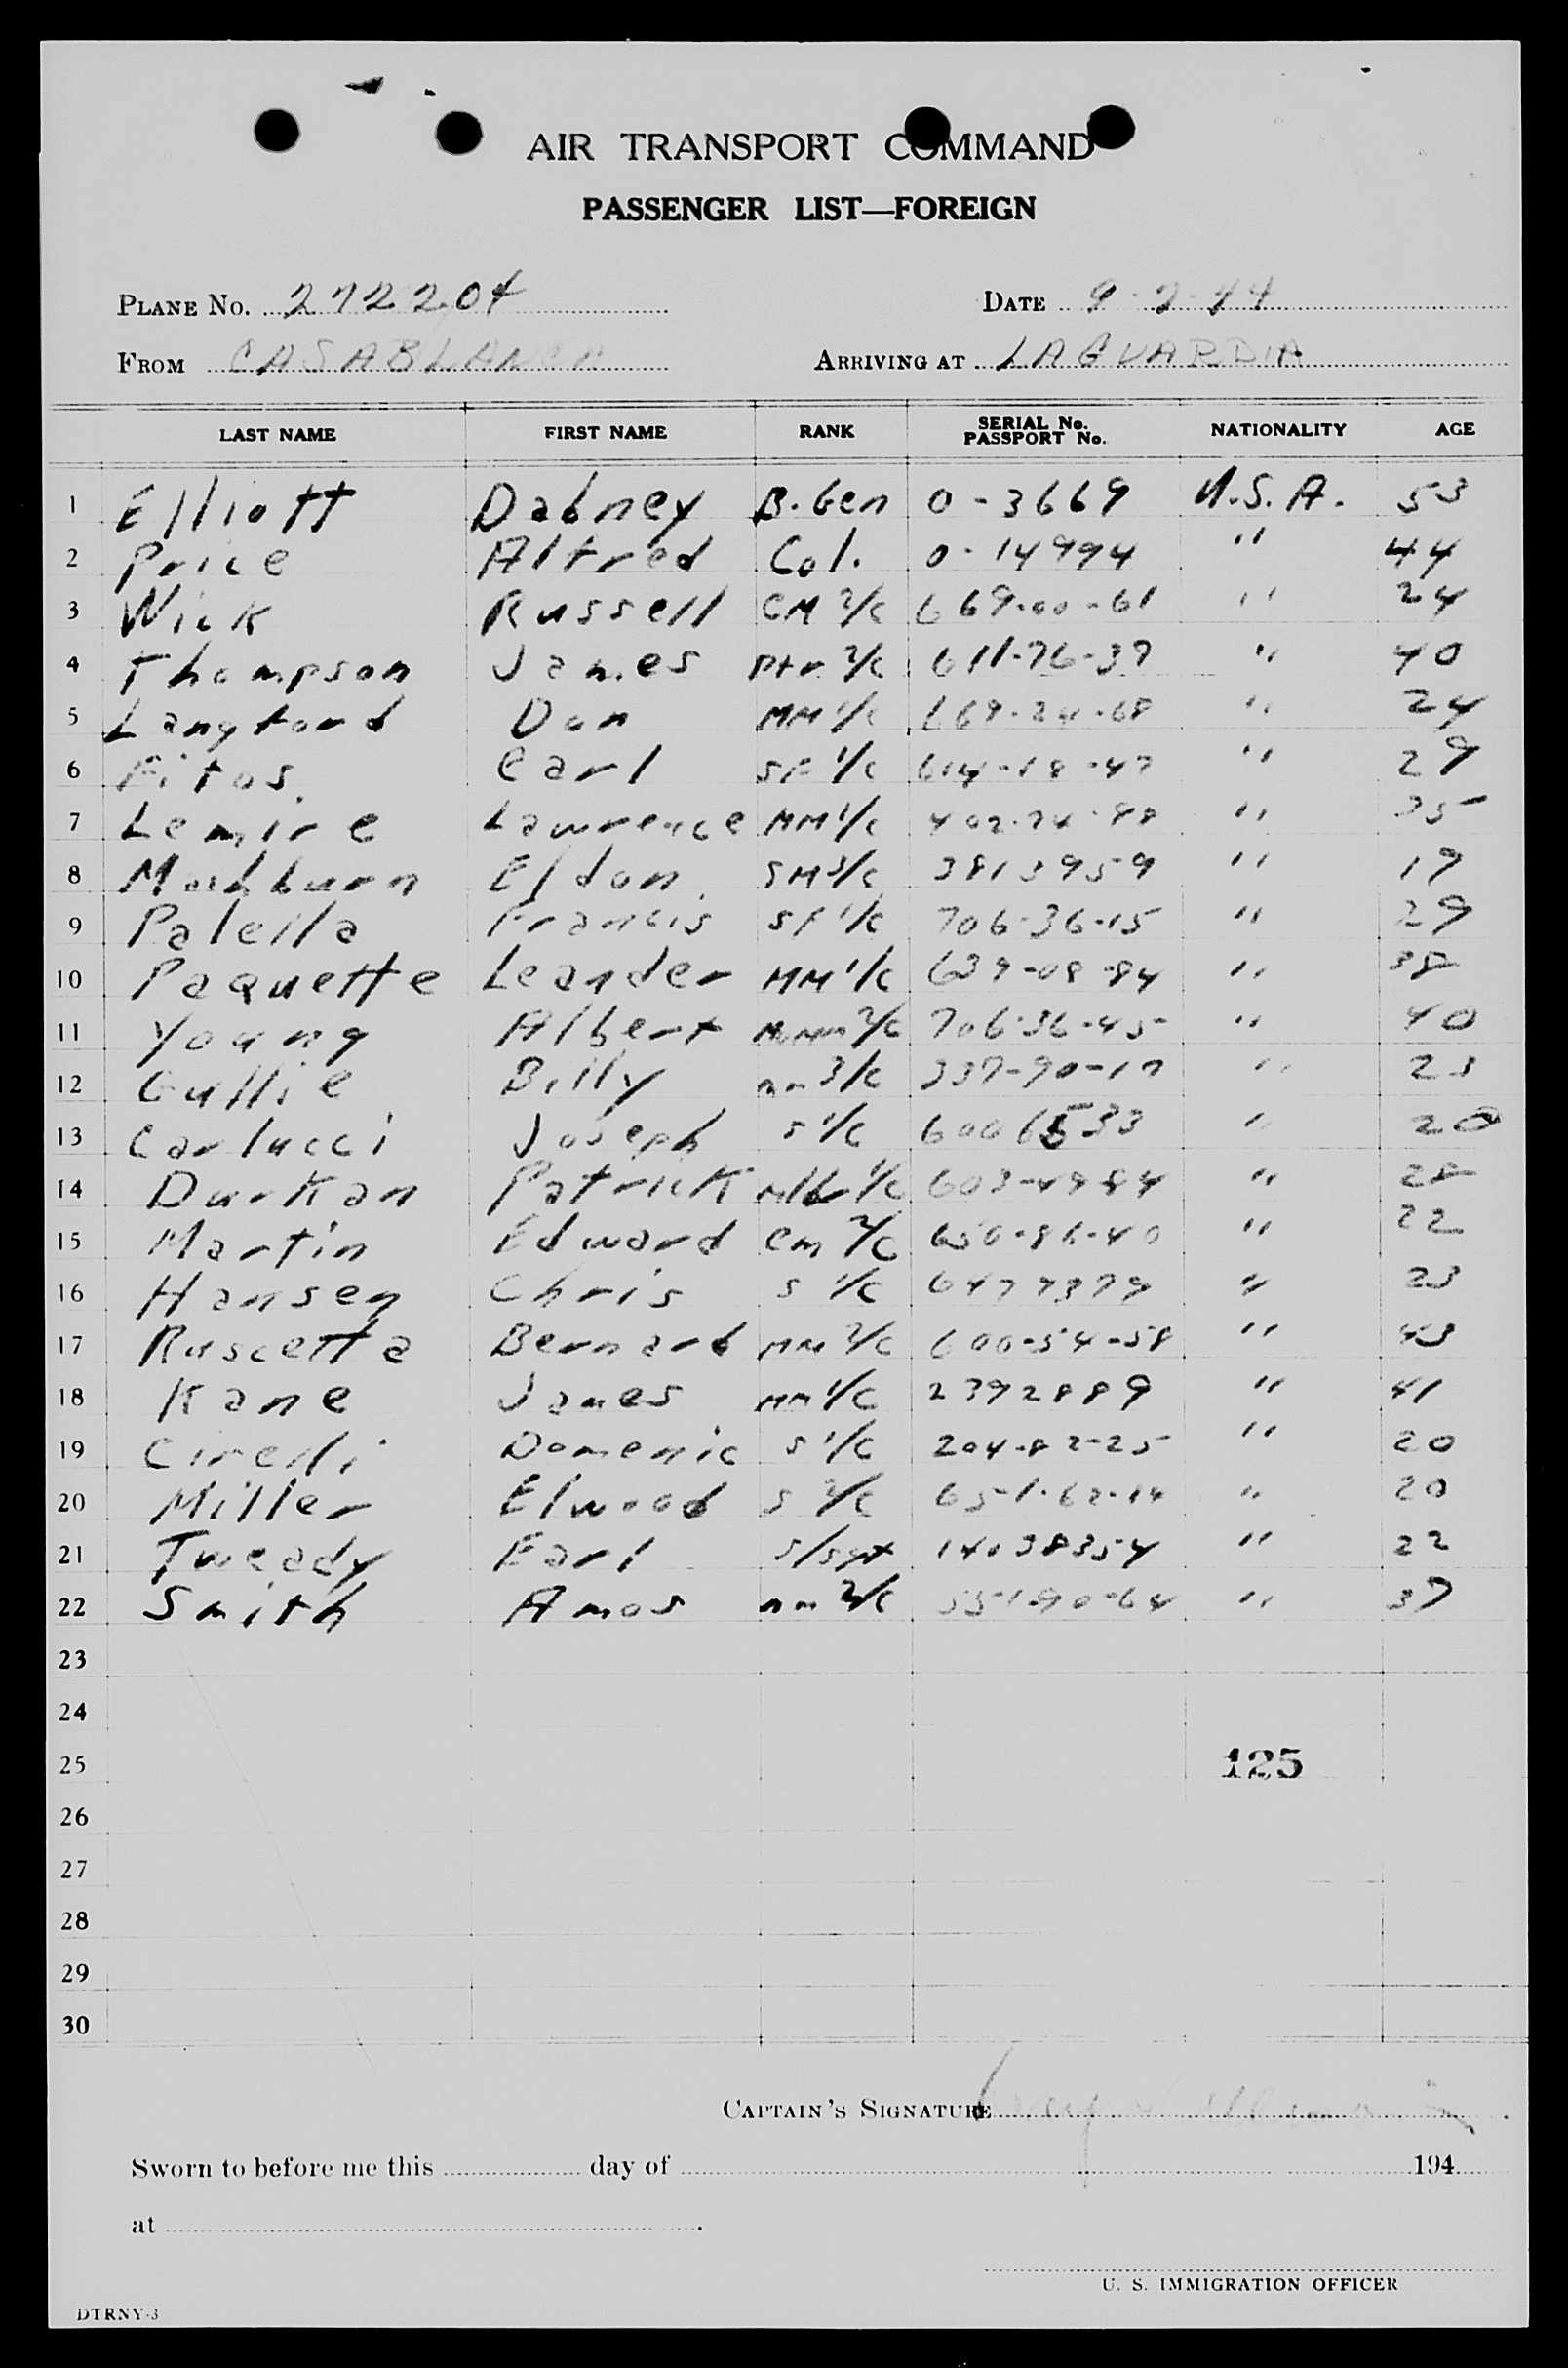 AIR TRANSPORT COMMAND
PASSENGER LIST—FOREIGN
PLANE No. 272204 DATE 9-2-44
FROM CASABLANCA ARRIVING AT LAGUARDIA
LAST NAME FIRST NAME RANK SERIAL No. PASSPORT No. NATIONALITY AGE
1 Elliott Dabney B. Gen 0-3669 U.S.A. 53
2 Price Alfred Col. 0-14994 " 44
3 Wick Russell CM 2/c 669-00-61 " 24
4 Thompson James Ptr 2/c 611-76-37 " 40
5 Langford Don MM 1/c 669-24-68 " 24
6 Fitos Earl SF 1/c 614-18-47 " 29
7 Lemire Lawrence MM 1/c 402-74-88 " 35
8 Mashburn Eldon SM 3/c 3813959 " 19
9 Palella Francis SF 1/c 706-36-15 " 29
10 Paquette Leander MM 1/c 639-08-84 " 38
11 Young Albert 2/c 706-36-45 " 40
12 Guffie Billy 3/c 337-90-17 " 23
13 Carlucci Joseph S 1/c 6006533 " 20
14 Durkan Patrick 1/c 603-4984 " 28
15 Martin Edward Cm 2/c 650-86-40 " 22
16 Hansen Chris S 1/c 6479379 " 23
17 Ruscetta Bernard MM 2/c 600-54-58 " 43
18 Kane James MM 1/c 2392889 " 41
19 Cirelli Domenic S 1/c 204-82-25 " 20
20 Miller Elwood S 2/c 651-62-14 " 20
21 Tweedy Earl S/Sgt 14038354 " 22
22 Smith Amos 2/c 551-90-64 " 37
23
24
25 125
26
27
28
29
30
CAPTAIN'S SIGNATURE
Sworn to before me this day of 194
at .
U. S. IMMIGRATION OFFICER
DTRNY-3